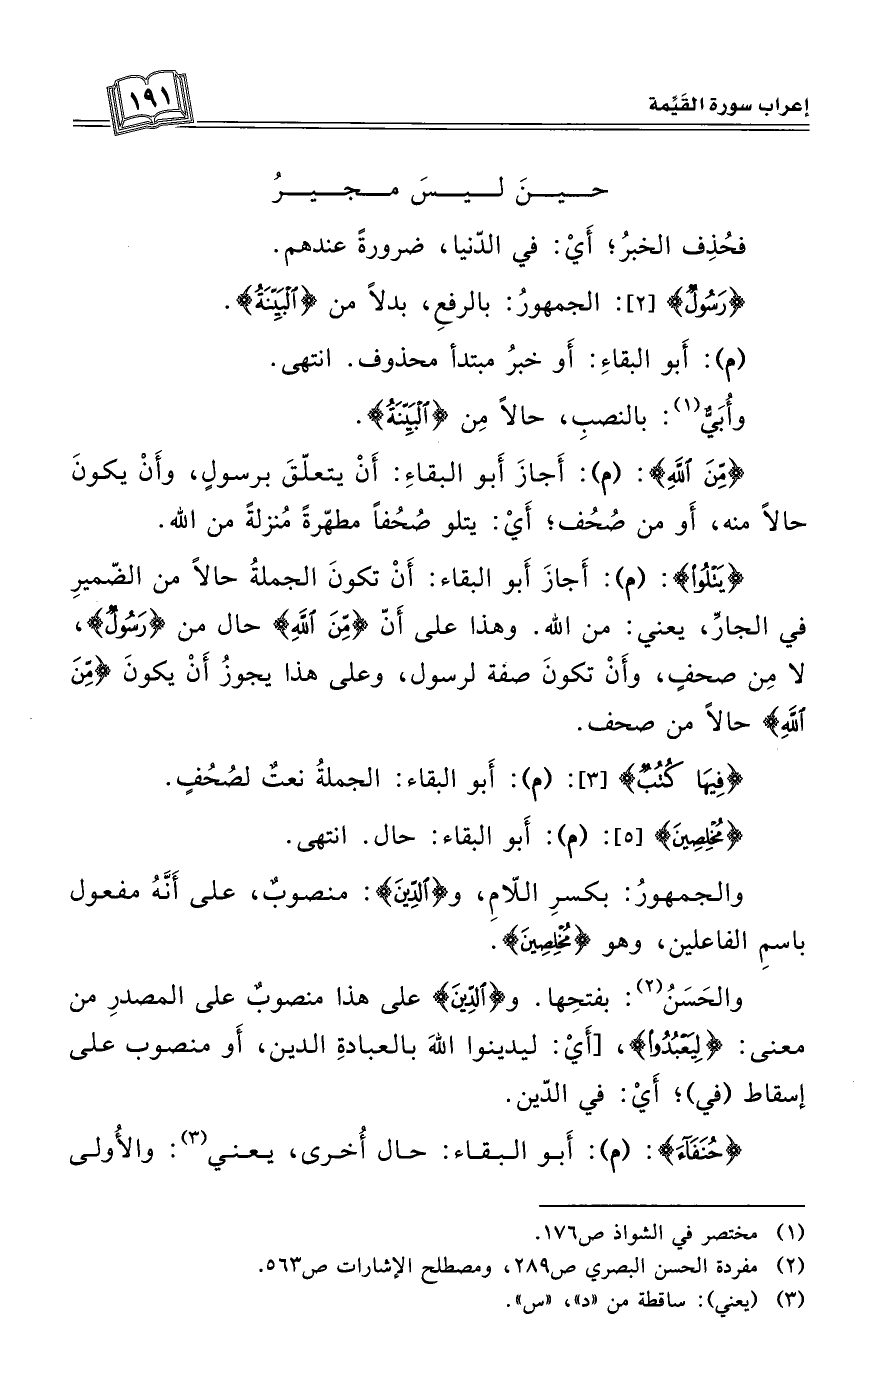 إعراب سورة القَيِّمة
١٩١
حـــيـــنَ لـــيـــسَ مـــجـــيـــرُ
فحُذِف الخبرُ؛ أَيْ: في الدّنيا، ضرورةً عندهم.
﴿رَسُولٌ﴾ [٢]: الجمهورُ: بالرفعِ، بدلاً من ﴿ٱلْبَيِّنَةُ﴾.
(م): أَبو البقاءِ: أَو خبرُ مبتدأ محذوف. انتهى.
وأُبَيٌّ(١): بالنصبِ، حالاً مِن ﴿ٱلْبَيِّنَةُ﴾.
﴿مِّنَ ٱللَّهِ﴾: (م): أَجازَ أَبو البقاءِ: أَنْ يتعلّقَ برسولٍ، وأَنْ يكونَ
حالاً منه، أَو من صُحُف؛ أَيْ: يتلو صُحُفاً مطهّرةً مُنزلةً من الله.
﴿يَتْلُوا۟﴾: (م): أَجازَ أَبو البقاء: أَنْ تكونَ الجملةُ حالاً من الضّميرِ
في الجارِّ، يعني: من الله. وهذا على أَنّ ﴿مِّنَ ٱللَّهِ﴾ حال من ﴿رَسُولٌ﴾،
لا مِن صحفٍ، وأَنْ تكونَ صفة لرسول، وعلى هذا يجوزُ أَنْ يكونَ ﴿مِّنَ
ٱللَّهِ﴾ حالاً من صحف.
﴿فِيهَا كُتُبٌ﴾ [٣]: (م): أَبو البقاء: الجملةُ نعتٌ لصُحُفٍ.
﴿مُخْلِصِينَ﴾ [٥]: (م): أَبو البقاء: حال. انتهى.
والجمهورُ: بكسرِ اللّامِ، و﴿ٱلدِّينَ﴾: منصوبٌ، على أَنَّهُ مفعول
باسمِ الفاعلين، وهو ﴿مُخْلِصِينَ﴾.
والحَسَنُ(٢): بفتحِها. و﴿ٱلدِّينَ﴾ على هذا منصوبٌ على المصدرِ من
معنى: ﴿لِيَعْبُدُوا۟﴾، [أَيْ: ليدينوا اللهَ بالعبادةِ الدين، أَو منصوب على
إسقاط (في)؛ أَيْ: في الدّين.
﴿حُنَفَآءَ﴾: (م): أَبـو الـبـقـاء: حـال أُخـرى، يـعـنـي(٣): والأُولـى
(١) مختصر في الشواذ ص١٧٦.
(٢) مفردة الحسن البصري ص٢٨٩، ومصطلح الإشارات ص٥٦٣.
(٣) (يعني): ساقطة من «د»، «س».